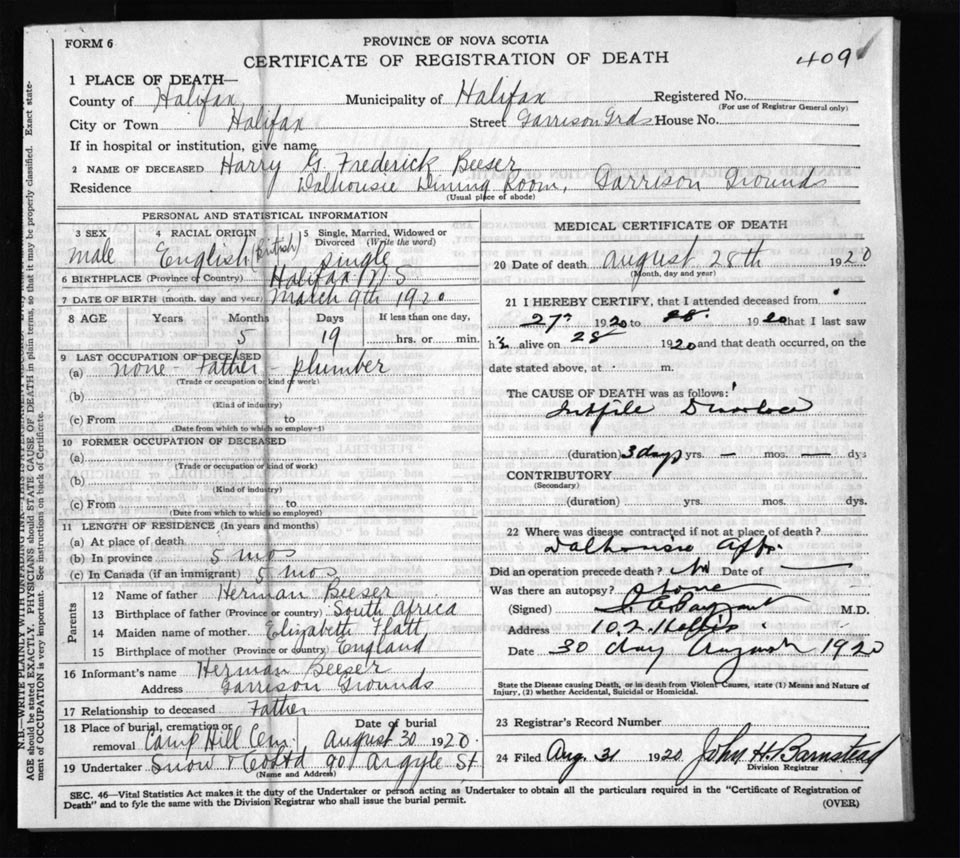 FORM 6
PROVINCE OF NOVA SCOTIA
CERTIFICATE OF REGISTRATION OF DEATH
409
1 PLACE OF DEATH—
County of Halifax Municipality of Halifax Registered No.
(For use of Registrar General only)
City or Town Halifax Street Garrison Grds House No.
If in hospital or institution, give name
2 NAME OF DECEASED Harry G. Frederick Beeser
Residence Dalhousie Dining Room, Garrison Grounds
(Usual place of abode)
PERSONAL AND STATISTICAL INFORMATION
3 SEX male
4 RACIAL ORIGIN English (British)
5 Single, Married, Widowed or Divorced (Write the word) single
6 BIRTHPLACE (Province or Country) Halifax N S
7 DATE OF BIRTH (month, day and year) March 9th 1920
8 AGE Years Months Days If less than one day,
5 19 hrs. or min.
9 LAST OCCUPATION OF DECEASED
(a) none - Father - plumber
(Trade or occupation or kind of work)
(b)
(Kind of industry)
(c) From to
(Date from which to which so employed)
10 FORMER OCCUPATION OF DECEASED
(a)
(Trade or occupation or kind of work)
(b)
(Kind of industry)
(c) From to
(Date from which to which so employed)
11 LENGTH OF RESIDENCE (In years and months)
(a) At place of death
(b) In province 5 mos
(c) In Canada (if an immigrant) 5 mos
Parents
12 Name of father Herman Beeser
13 Birthplace of father (Province or country) South Africa
14 Maiden name of mother Elizabeth Flatt
15 Birthplace of mother (Province or country) England
16 Informant's name Herman Beeser
Address Garrison Grounds
17 Relationship to deceased Father
18 Place of burial, cremation or removal Camp Hill Cem. Date of burial August 30 1920
19 Undertaker Snow & Co Ltd 90 Argyle St
(Name and Address)
MEDICAL CERTIFICATE OF DEATH
20 Date of death August 28th 1920
(Month, day and year)
21 I HEREBY CERTIFY, that I attended deceased from
27 1920 to 28 1920 that I last saw
h alive on 28 1920 and that death occurred, on the
date stated above, at m.
The CAUSE OF DEATH was as follows:
(duration) 3 days yrs. — mos. — dys
CONTRIBUTORY
(Secondary)
(duration) yrs. mos. dys.
22 Where was disease contracted if not at place of death?
Dalhousie
Did an operation precede death? No Date of —
Was there an autopsy?
(Signed) M.D.
Address Hollis
Date 30 day August 1920
State the Disease causing Death, or in death from Violent Causes, state (1) Means and Nature of
Injury, (2) whether Accidental, Suicidal or Homicidal.
23 Registrar's Record Number
24 Filed Aug. 31 1920 John H. Barnstead
Division Registrar
SEC. 46—Vital Statistics Act makes it the duty of the Undertaker or person acting as Undertaker to obtain all the particulars required in the "Certificate of Registration of
Death" and to fyle the same with the Division Registrar who shall issue the burial permit.
(OVER)